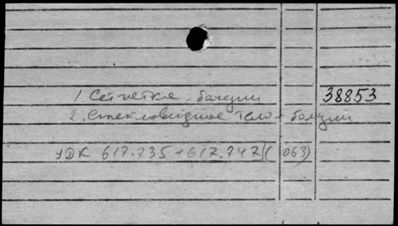 1. Сетчатка - болезни 38853
2. Стекловидное тело - болезни
УДК 617.735+617.747](063)